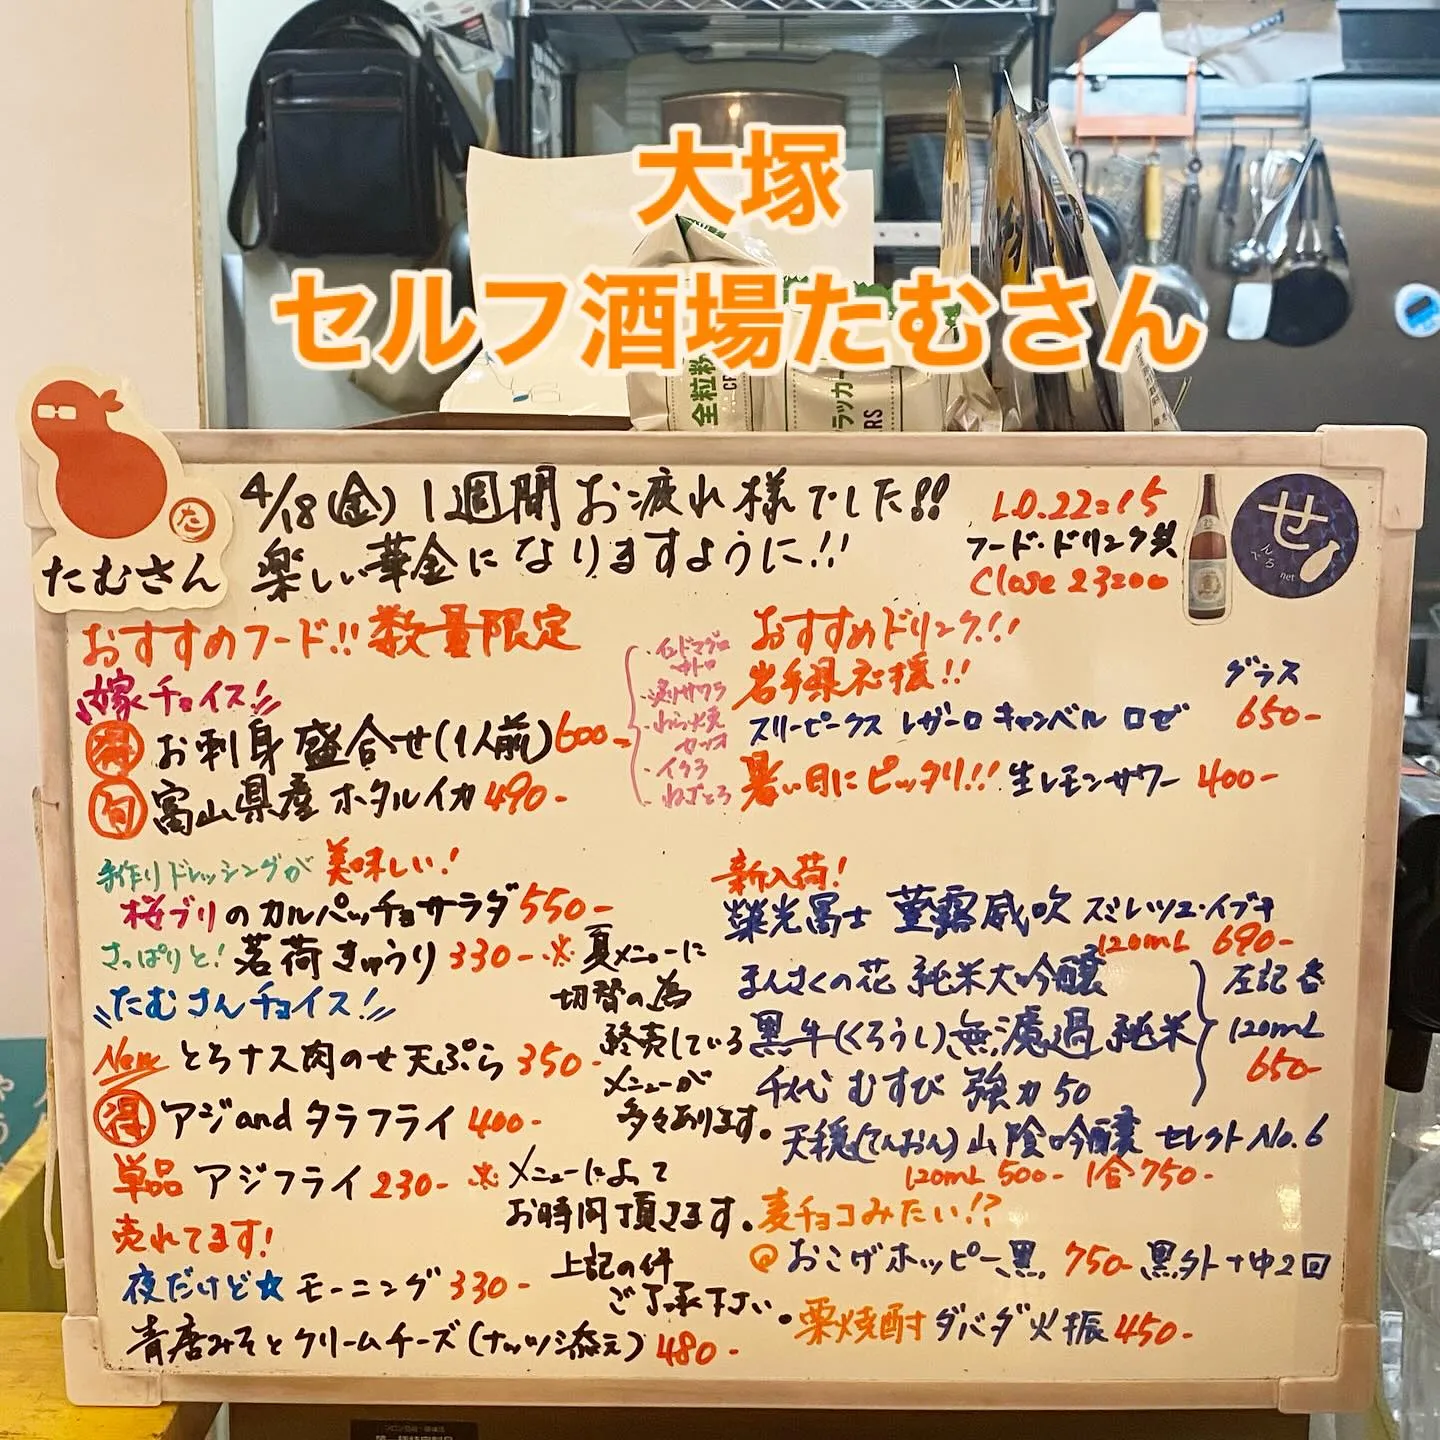 大塚
セルフ酒場たむさん
全粒粉
ラッカー
た
たむさん
4/18(金) 1週間お疲れ様でした!!
楽しい華金になりますように!!
L.O.22=15
フード・ドリンク共
Close 23=00
せ
んべろ
net
おすすめフード!!数量限定
嫁チョイス!!
得 お刺身盛合せ(1人前)600-
・インドマグロ
中トロ
・炙りサワラ
・わら焼き
カツオ
・イクラ
・ねぎとろ
旬 富山県産ホタルイカ490-
手作りドレッシングが美味しい!
桜ブリのカルパッチョサラダ550-
さっぱりと!茗荷きゅうり330-
たむさんチョイス!!
New とろナス肉のせ天ぷら350-
得 アジandタラフライ400-
単品 アジフライ230-
売れてます!
夜だけど★モーニング330-
青唐みそとクリームチーズ(ナッツ添え)480-
※夏メニューに
切替の為
終売している
メニューが
多々あります。
※メニューによって
お時間頂きます。
上記の件
ご了承下さい。
おすすめドリンク!!
岩手県応援!!
グラス
スリーピークス レザーロ キャンベル ロゼ 650-
暑い日にピッタリ!!生レモンサワー 400-
新入荷!
榮光冨士 菫露威吹 スミレツユ・イブキ
120mL 690-
まんさくの花 純米大吟醸
黒牛(くろうし)無濾過純米
千代むすび 強力50
左記各
120mL
650-
天穏(てんおん)山陰吟醸 セレクトNo.6
120mL 500- 1合750-
麦チョコみたい!?
@おこげホッピー黒 750- 黒外+中2回
栗焼酎 ダバダ火振450-